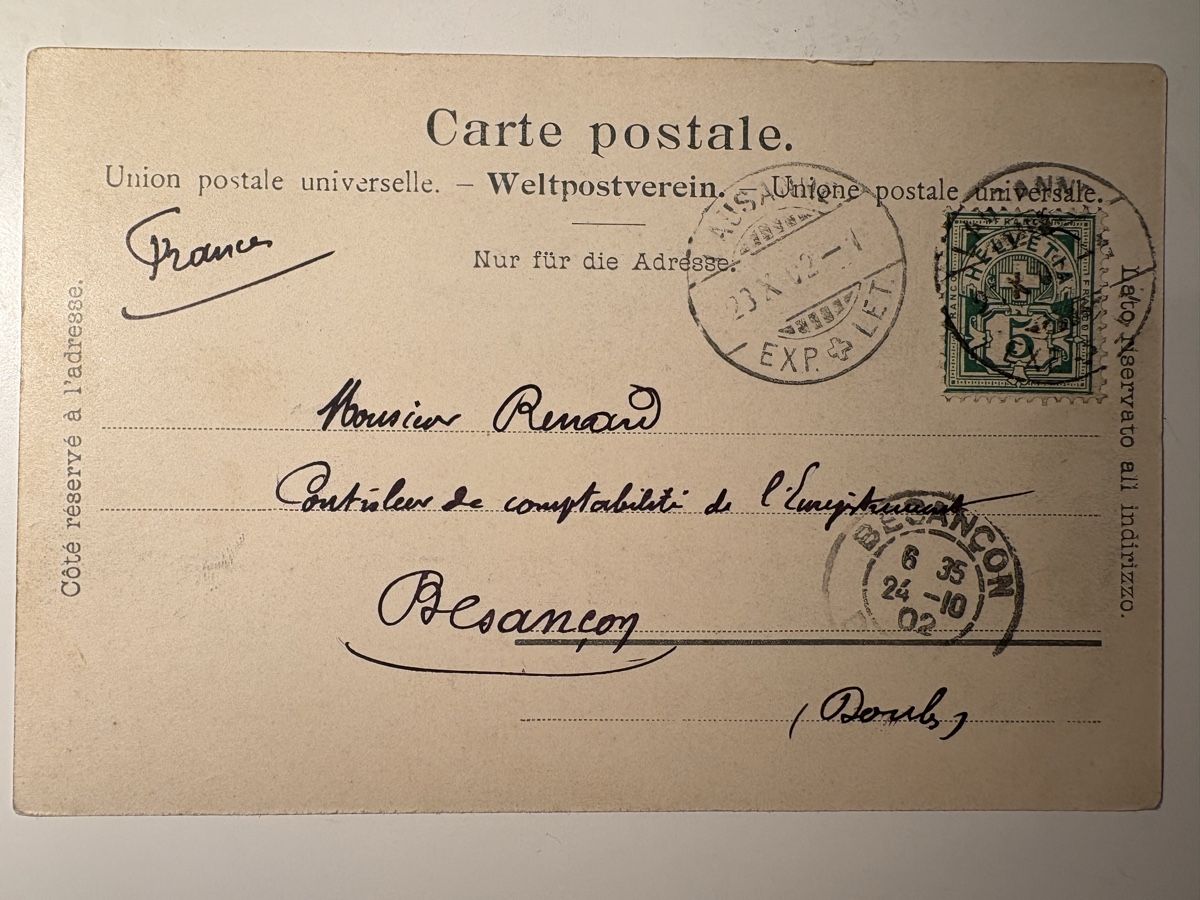 Carte postale.
Union postale universelle. – Weltpostverein. – Unione postale universale.
France
Nur für die Adresse.
LAUSANNE
23.X.02.-7
EXP. LET.
LAUSANNE
FRANCO
HELVETIA
FRANCO
FRANCO
5
Côté réservé à l'adresse.
Lato riservato all indirizzo.
Monsieur Renard
Contrôleur de comptabilité de l'Enregistrement
Besançon
BESANÇON
6 35
24 -10
02
(Doubs)